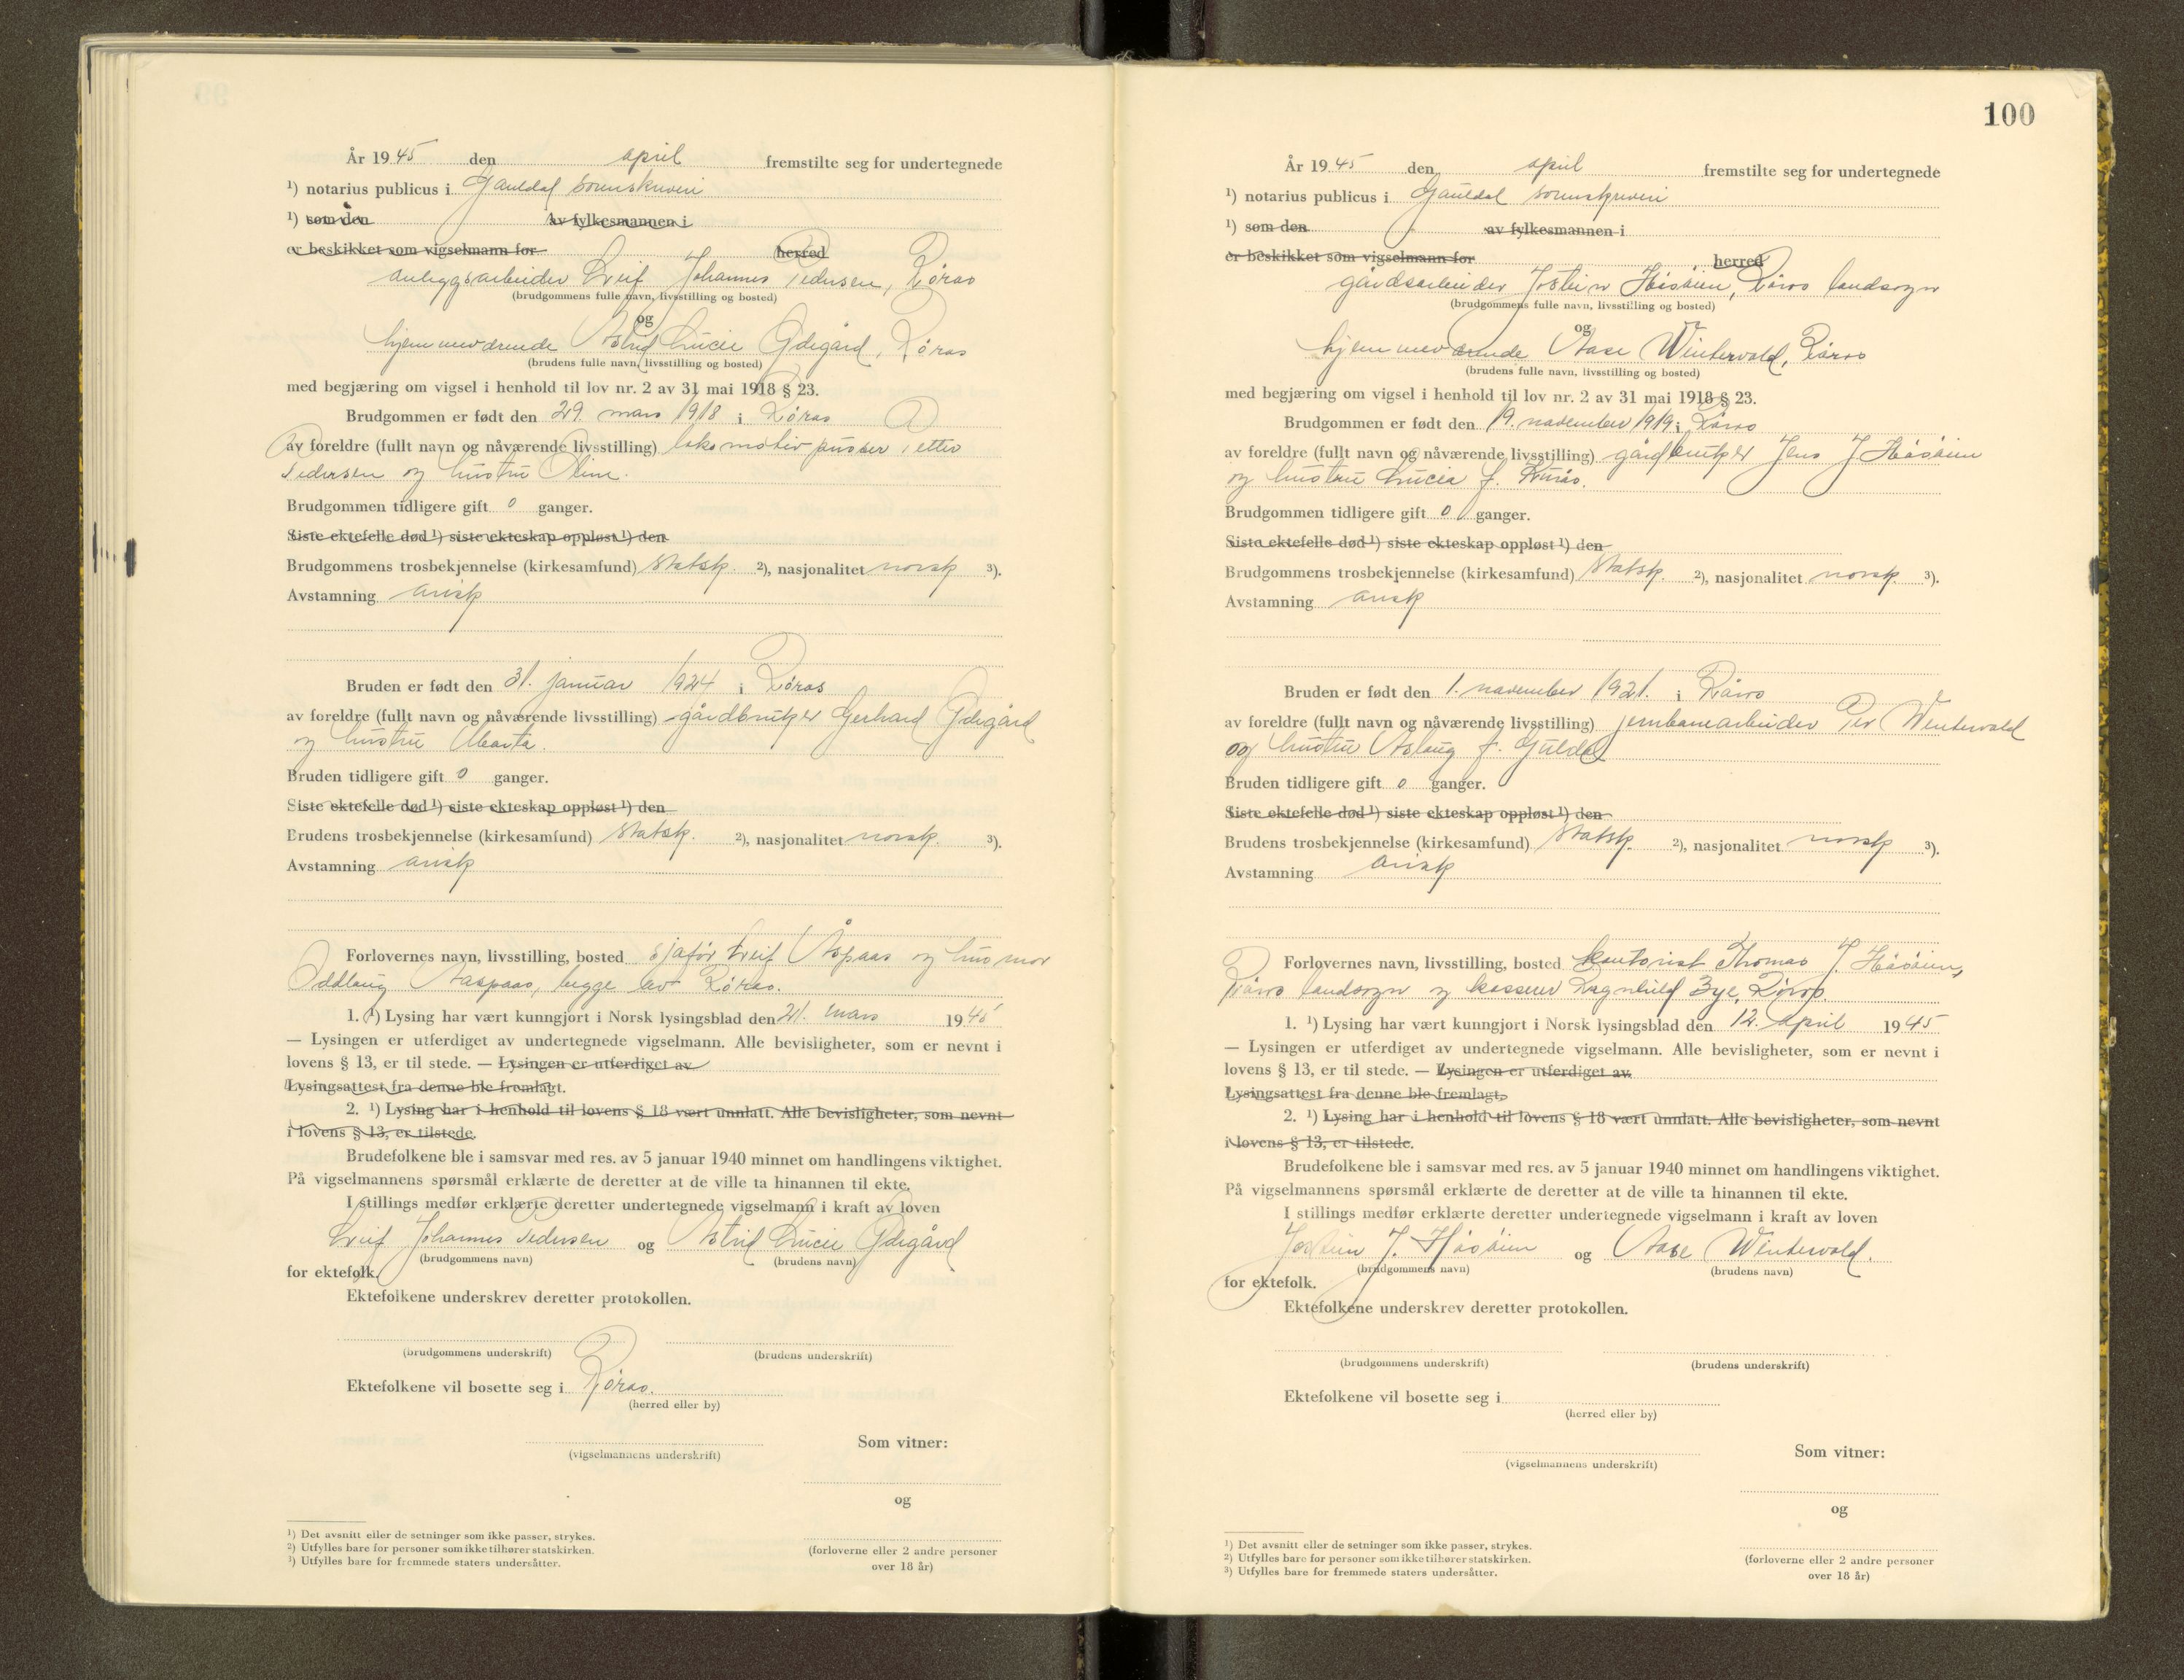 År 1945 den april fremstilte seg for undertegnede
¹) notarius publicus i Gauldal sorenskriveri
¹) som den Av fylkesmannen i
er beskikket som vigselmann for herred
anleggsarbeider Leif Johannes Pedersen, Røros
(brudgommens fulle navn, livsstilling og bosted)
og
hjemmeværende Astrid Lucie Ødegård, Røros
(brudens fulle navn, livsstilling og bosted)
med begjæring om vigsel i henhold til lov nr. 2 av 31 mai 1918 § 23.
Brudgommen er født den 29. mars 1918 i Røros
av foreldre (fullt navn og nåværende livsstilling) lokomotivpusser Petter
Pedersen og hustru Oline.
Brudgommen tidligere gift 0 ganger.
Siste ektefelle død ¹) siste ekteskap oppløst ¹) den
Brudgommens trosbekjennelse (kirkesamfund) Statsk. ²), nasjonalitet norsk ³).
Avstamning arisk
Bruden er født den 31. januar 1924 i Røros
av foreldre (fullt navn og nåværende livsstilling) gårdbruker Gerhard Ødegård
og hustru Marta.
Bruden tidligere gift 0 ganger.
Siste ektefelle død ¹) siste ekteskap oppløst ¹) den
Brudens trosbekjennelse (kirkesamfund) Statsk. ²), nasjonalitet norsk. ³).
Avstamning arisk
Forlovernes navn, livsstilling, bosted sjafør Leif Aspaas og husmor
Oddlaug Aaspaas, begge av Røros.
1. ¹) Lysing har vært kunngjort i Norsk lysingsblad den 21. mars 1945
— Lysingen er utferdiget av undertegnede vigselmann. Alle bevisligheter, som er nevnt i
lovens § 13, er til stede. — Lysingen er utferdiget av
Lysingsattest fra denne ble fremlagt.
2. ¹) Lysing har i henhold til lovens § 18 vært unnlatt. Alle bevisligheter, som nevnt
i lovens § 13, er tilstede.
Brudefolkene ble i samsvar med res. av 5 januar 1940 minnet om handlingens viktighet.
På vigselmannens spørsmål erklærte de deretter at de ville ta hinannen til ekte.
I stillings medfør erklærte deretter undertegnede vigselmann i kraft av loven
Leif Johannes Pedersen og Astrid Lucie Ødegård
(brudgommens navn) (brudens navn)
for ektefolk.
Ektefolkene underskrev deretter protokollen.
(brudgommens underskrift) (brudens underskrift)
Ektefolkene vil bosette seg i Røros.
(herred eller by)
Som vitner:
(vigselmannens underskrift)
og
¹) Det avsnitt eller de setninger som ikke passer, strykes.
²) Utfylles bare for personer som ikke tilhører statskirken.
³) Utfylles bare for fremmede staters undersåtter.
(forloverne eller 2 andre personer
over 18 år)
100
År 1945 den april fremstilte seg for undertegnede
¹) notarius publicus i Gauldal sorenskriveri
¹) som den av fylkesmannen i
er beskikket som vigselmann for herred
gårdsarbeider Jostein Håsåen, Røros landsogn
(brudgommens fulle navn, livsstilling og bosted)
og
hjemmeværende Aase Wintervold, Røros
(brudens fulle navn, livsstilling og bosted)
med begjæring om vigsel i henhold til lov nr. 2 av 31 mai 1918 § 23.
Brudgommen er født den 19. november 1919 i Røros
av foreldre (fullt navn og nåværende livsstilling) gårdbruker Jens J Håsåen
og hustru Lucia f.
Brudgommen tidligere gift 0 ganger.
Siste ektefelle død ¹) siste ekteskap oppløst ¹) den
Brudgommens trosbekjennelse (kirkesamfund) Statsk. ²), nasjonalitet norsk ³).
Avstamning arisk
Bruden er født den 1. november 1921. i Røros
av foreldre (fullt navn og nåværende livsstilling) jernbanearbeider Per Wintervold
og hustru Aslaug f. Guldal
Bruden tidligere gift 0 ganger.
Siste ektefelle død ¹) siste ekteskap oppløst ¹) den
Brudens trosbekjennelse (kirkesamfund) Statsk. ²), nasjonalitet norsk ³).
Avstamning arisk
Forlovernes navn, livsstilling, bosted kontorist Thomas J. Håsåen,
Røros landsogn og kasserer Ragnhild Bye, Røros.
1. ¹) Lysing har vært kunngjort i Norsk lysingsblad den 12. april 1945
— Lysingen er utferdiget av undertegnede vigselmann. Alle bevisligheter, som er nevnt i
lovens § 13, er til stede. — Lysingen er utferdiget av
Lysingsattest fra denne ble fremlagt.
2. ¹) Lysing har i henhold til lovens § 18 vært unnlatt. Alle bevisligheter, som nevnt
i lovens § 13, er tilstede.
Brudefolkene ble i samsvar med res. av 5 januar 1940 minnet om handlingens viktighet.
På vigselmannens spørsmål erklærte de deretter at de ville ta hinannen til ekte.
I stillings medfør erklærte deretter undertegnede vigselmann i kraft av loven
Jostein J. Håsåen og Aase Wintervold.
(brudgommens navn) (brudens navn)
for ektefolk.
Ektefolkene underskrev deretter protokollen.
(brudgommens underskrift) (brudens underskrift)
Ektefolkene vil bosette seg i
(herred eller by)
Som vitner:
(vigselmannens underskrift)
og
¹) Det avsnitt eller de setninger som ikke passer, strykes.
²) Utfylles bare for personer som ikke tilhører statskirken.
³) Utfylles bare for fremmede staters undersåtter.
(forloverne eller 2 andre personer
over 18 år)